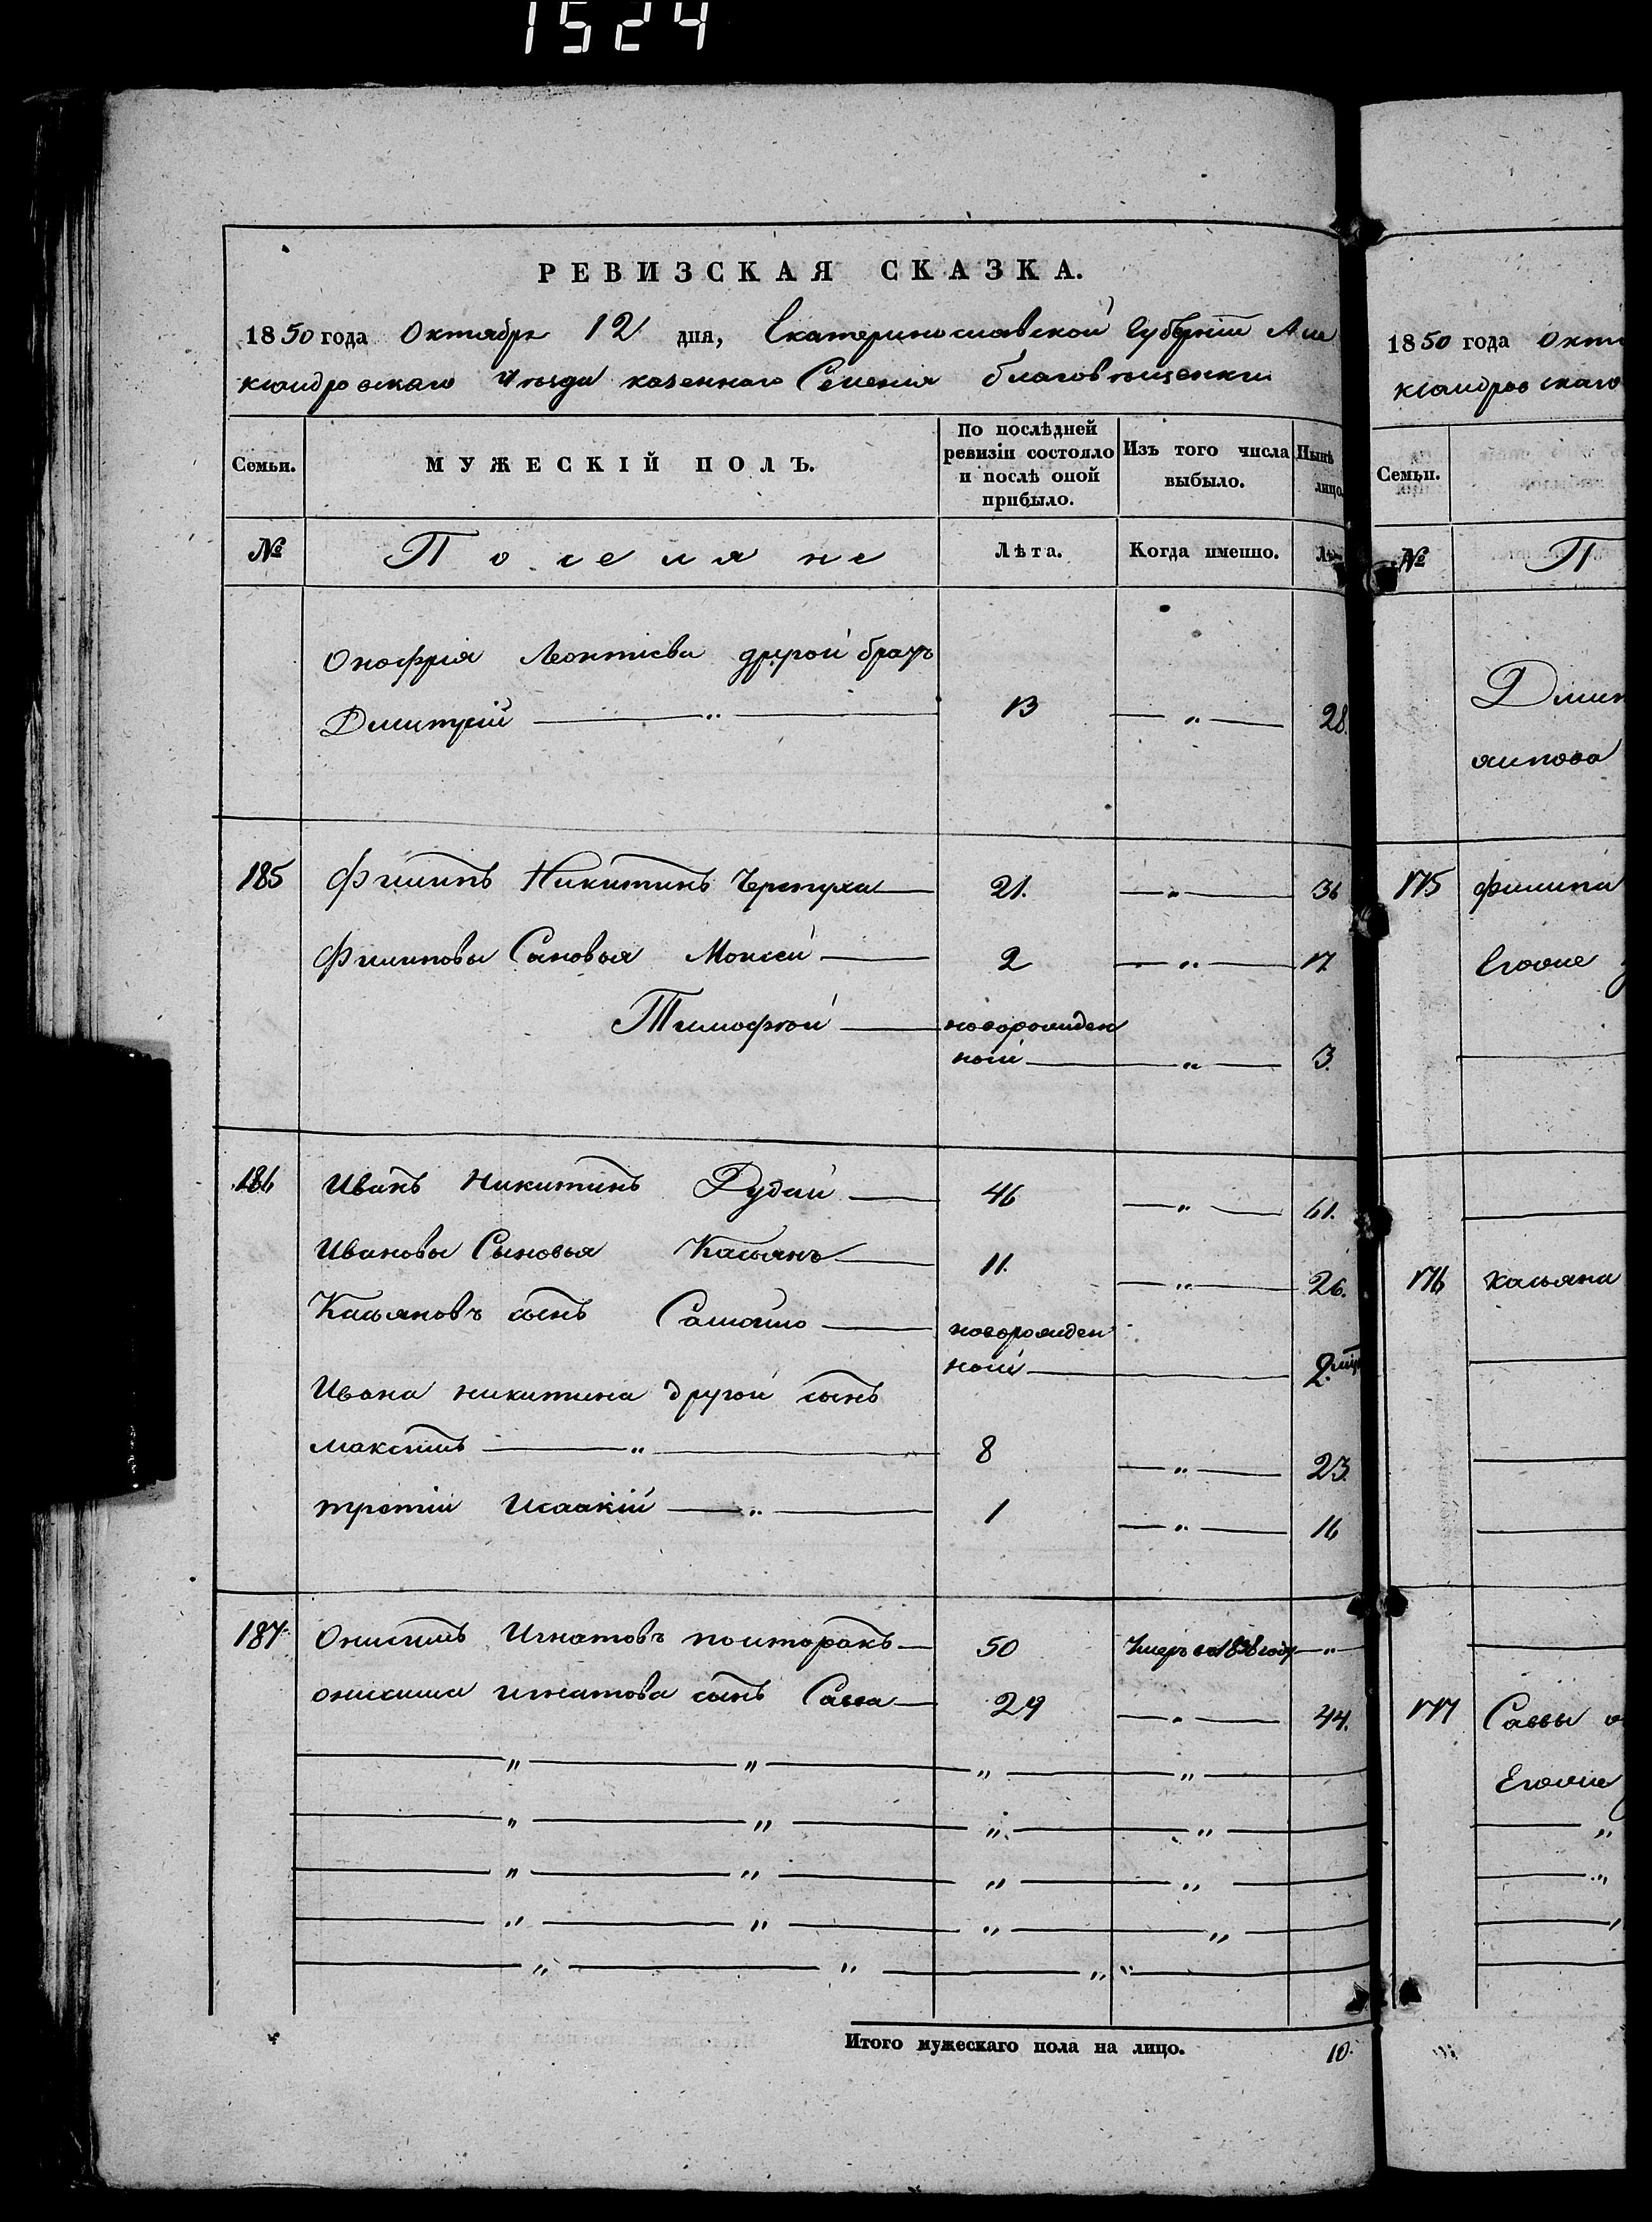 1524
РЕВИЗСКАЯ СКАЗКА.
1850 года Октября 12 дня, Екатеринославской Губерніи Але
ксандровскаго Уѣзда казеннаго Селенія благовѣщенки
Семьи.
МУЖЕСКІЙ ПОЛЪ.
По послѣдней ревизіи состояло и послѣ оной прибыло.
Изъ того числа выбыло.
Нынѣ лицо
№ Поселяне Лѣта. Когда именно. Лѣ
Онофрія Леонтіева другой братъ
Дмитрій — „ — 13 — „ — 28.
185 Филипъ Никитинъ Черепуха — 21. — „ — 36
Филиповы Сыновья Моисей — 2 — „ — 17
Тимофѣй — новорожден
ной — „ — 3.
186 Иванъ Никитинъ Рудий — 46 — „ — 61.
Ивановы Сыновья Касьянъ — 11. — „ — 26.
Касьяновъ сынъ Самойло — новорожден
ной — 2
Ивана никитина другой сынъ
максимъ — „ — 8 — „ — 23.
третій Исаакій — „ — 1 — „ — 16
187 Онисимъ Игнатовъ полторакъ — 50 Умеръ в 1838 году — „ —
онисима игнатова сынъ Савва — 29 — „ — 44.
— „ — „ — „ — „ —
— „ — „ — „ — „ —
— „ — „ — „ — „ —
— „ — „ — „ — „ —
— „ — „ — „ „ —
Итого мужескаго пола на лицо. 10.
1850 года Октя
ксандровскаго
Семьи.
№ П
Дмит
175 филипа
176 касьяна
177 Саввы о